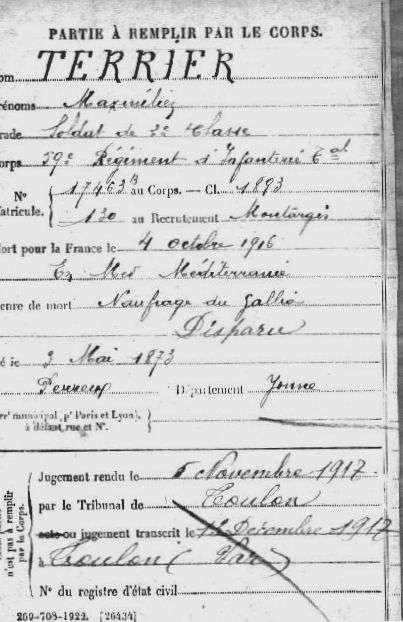 PARTIE À REMPLIR PAR LE CORPS.
om TERRIER
rénoms Maximilien
rade Soldat de 2e Classe
orps 59e Régiment d'Infanterie Tal
N° 17463B au Corps. — Cl. 1893
atricule. 130 au Recrutement Montargis
ort pour la France le 4 octobre 1916
En Mer Méditerranée
enre de mort Naufrage du Gallia
Disparu
é le 3 Mai 1873
Perreux Département Yonne
rr' municipal, p' Paris et Lyon),
à défaut rue et N°.
Jugement rendu le 5 Novembre 1917.
par le Tribunal de Toulon
acte ou jugement transcrit le 12 Décembre 1917
à Toulon (Var)
N° du registre d'état civil
n'est pas à remplir
par le Corps.
269-708-1922. [26434]